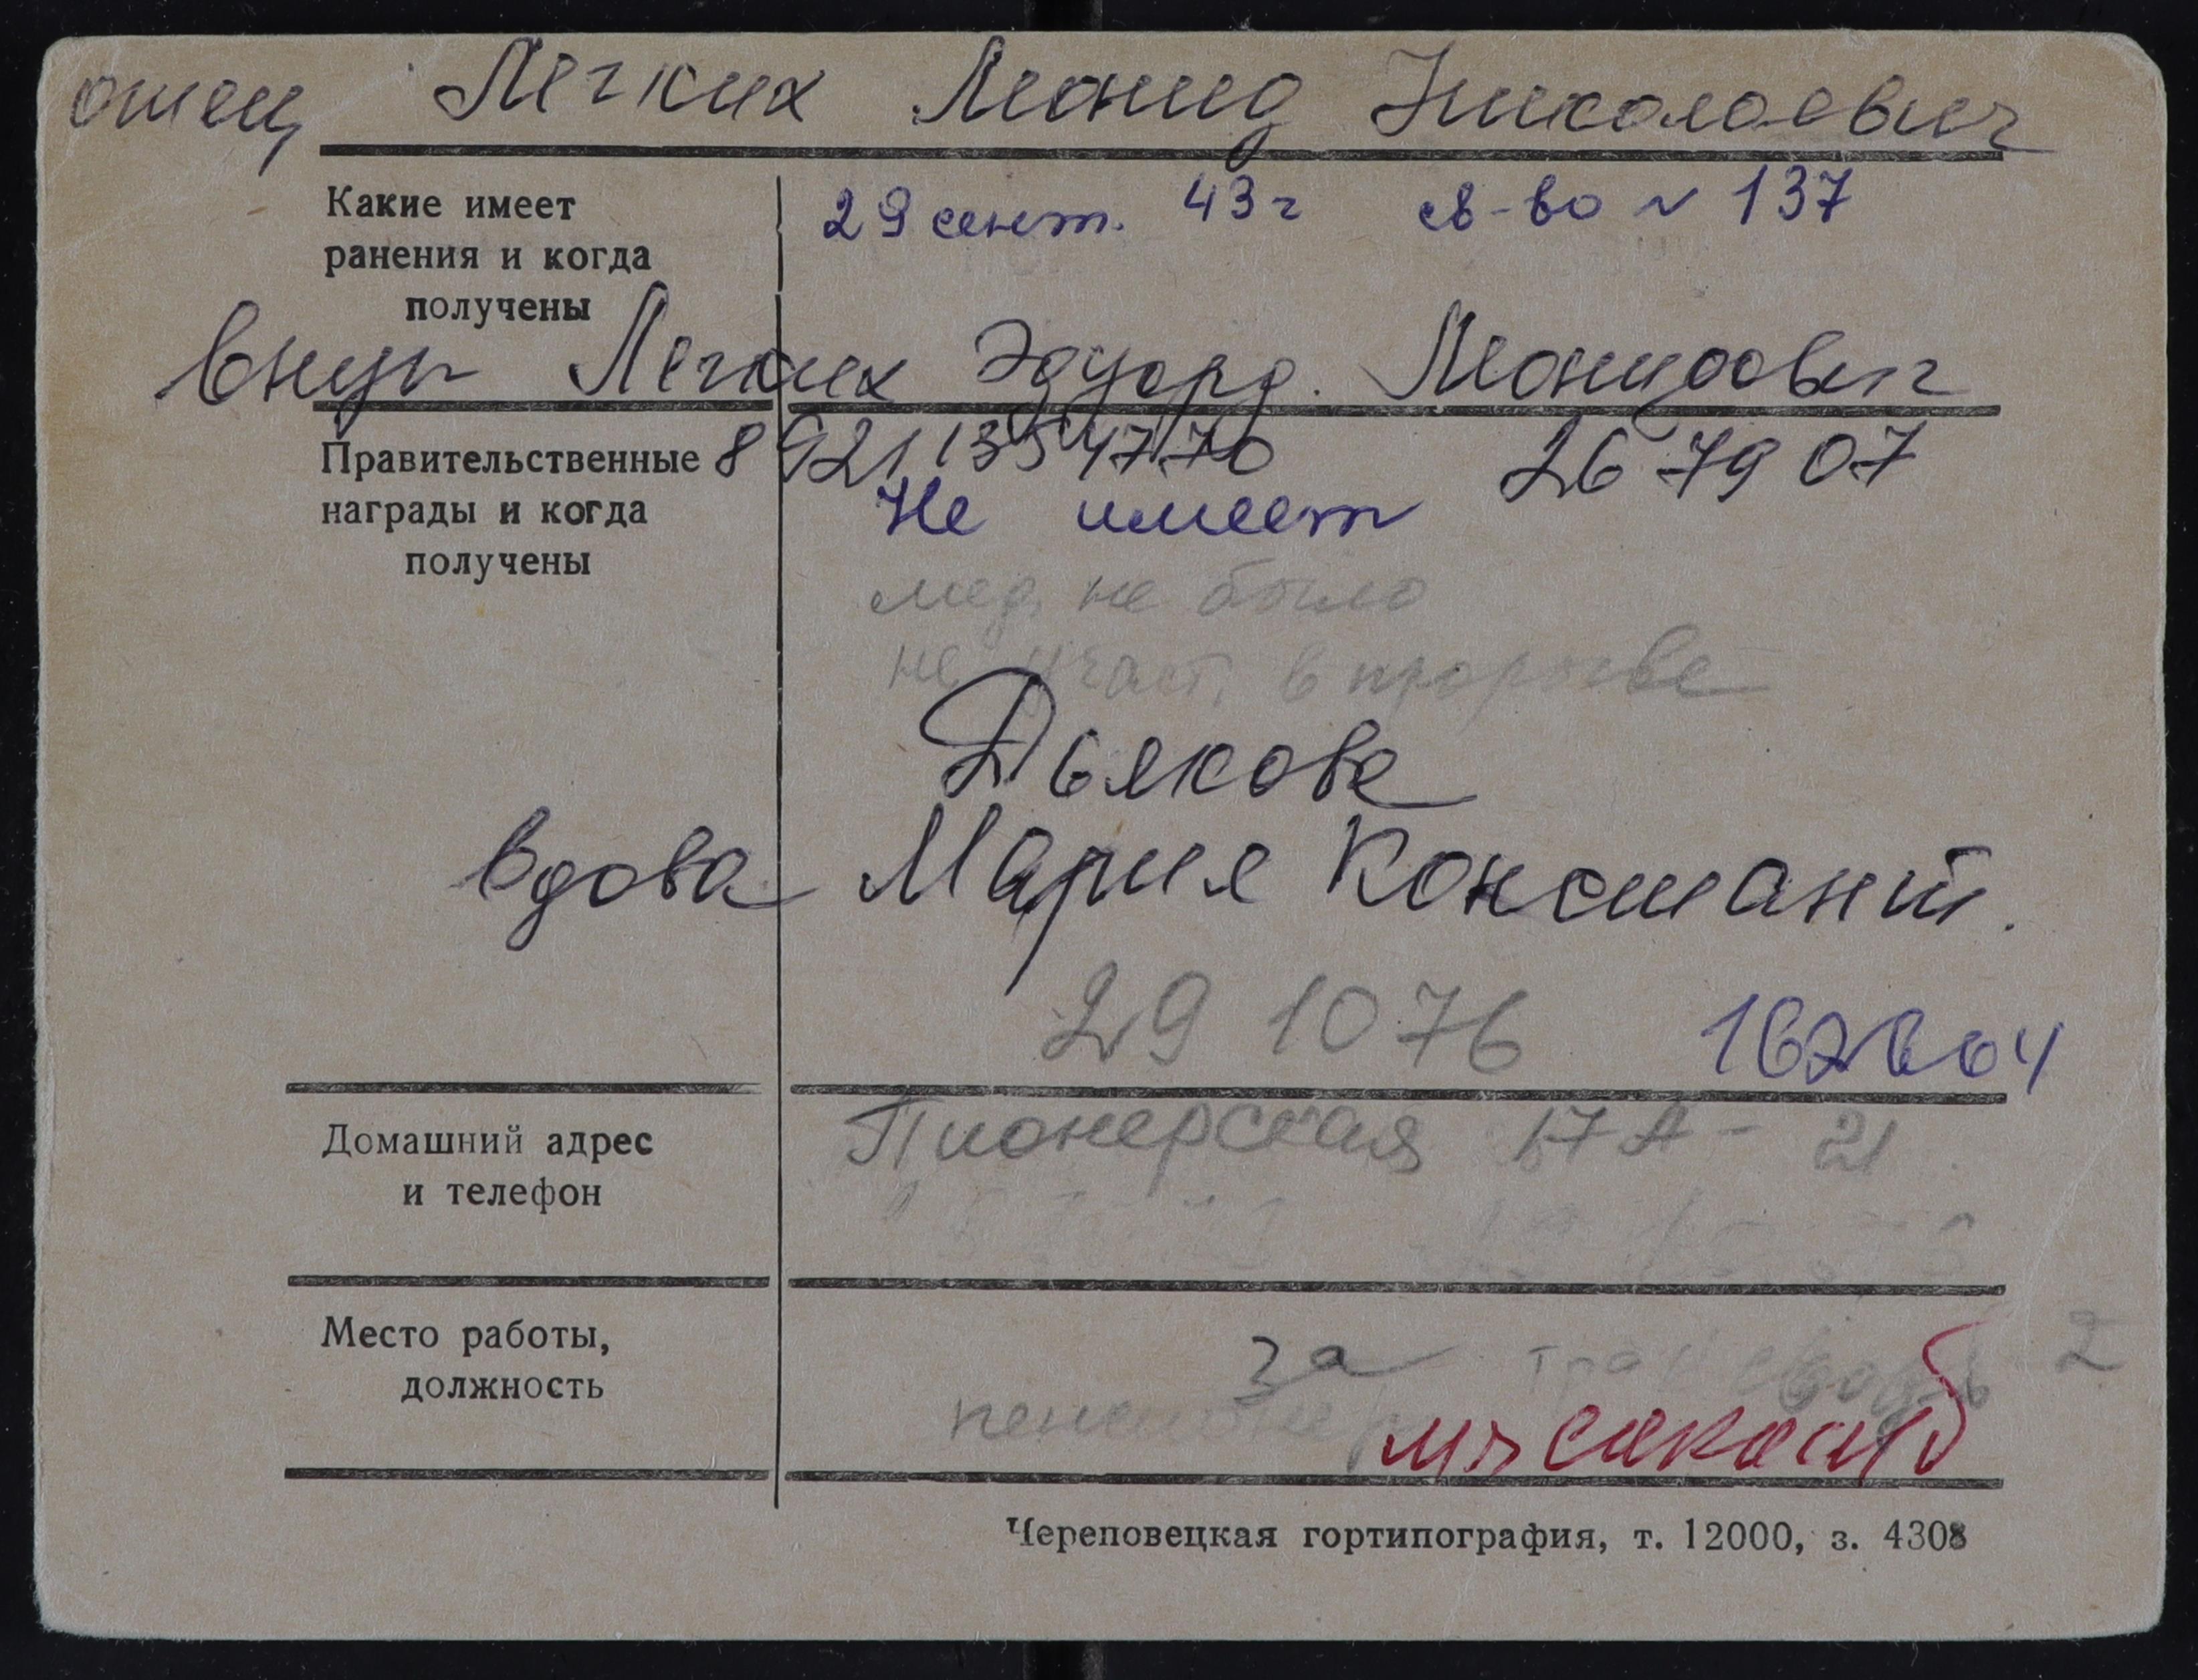 отец Легких Леонид Николаевич
Какие имеет
ранения и когда
получены
29 сент. 43 г св-во N 137
внук Легких Эдуард. Леонидович
8 921 135 47 70 26 79 07
Правительственные
награды и когда
получены
Не имеет
мед. не было
не участ. в прорыве
Дьякова
вдова Мария Констант.
29 10 76
Домашний адрес
и телефон
Пионерская 17А - 21
Место работы,
должность
за
2
пенсионер
Череповецкая гортипография, т. 12000, з. 4308